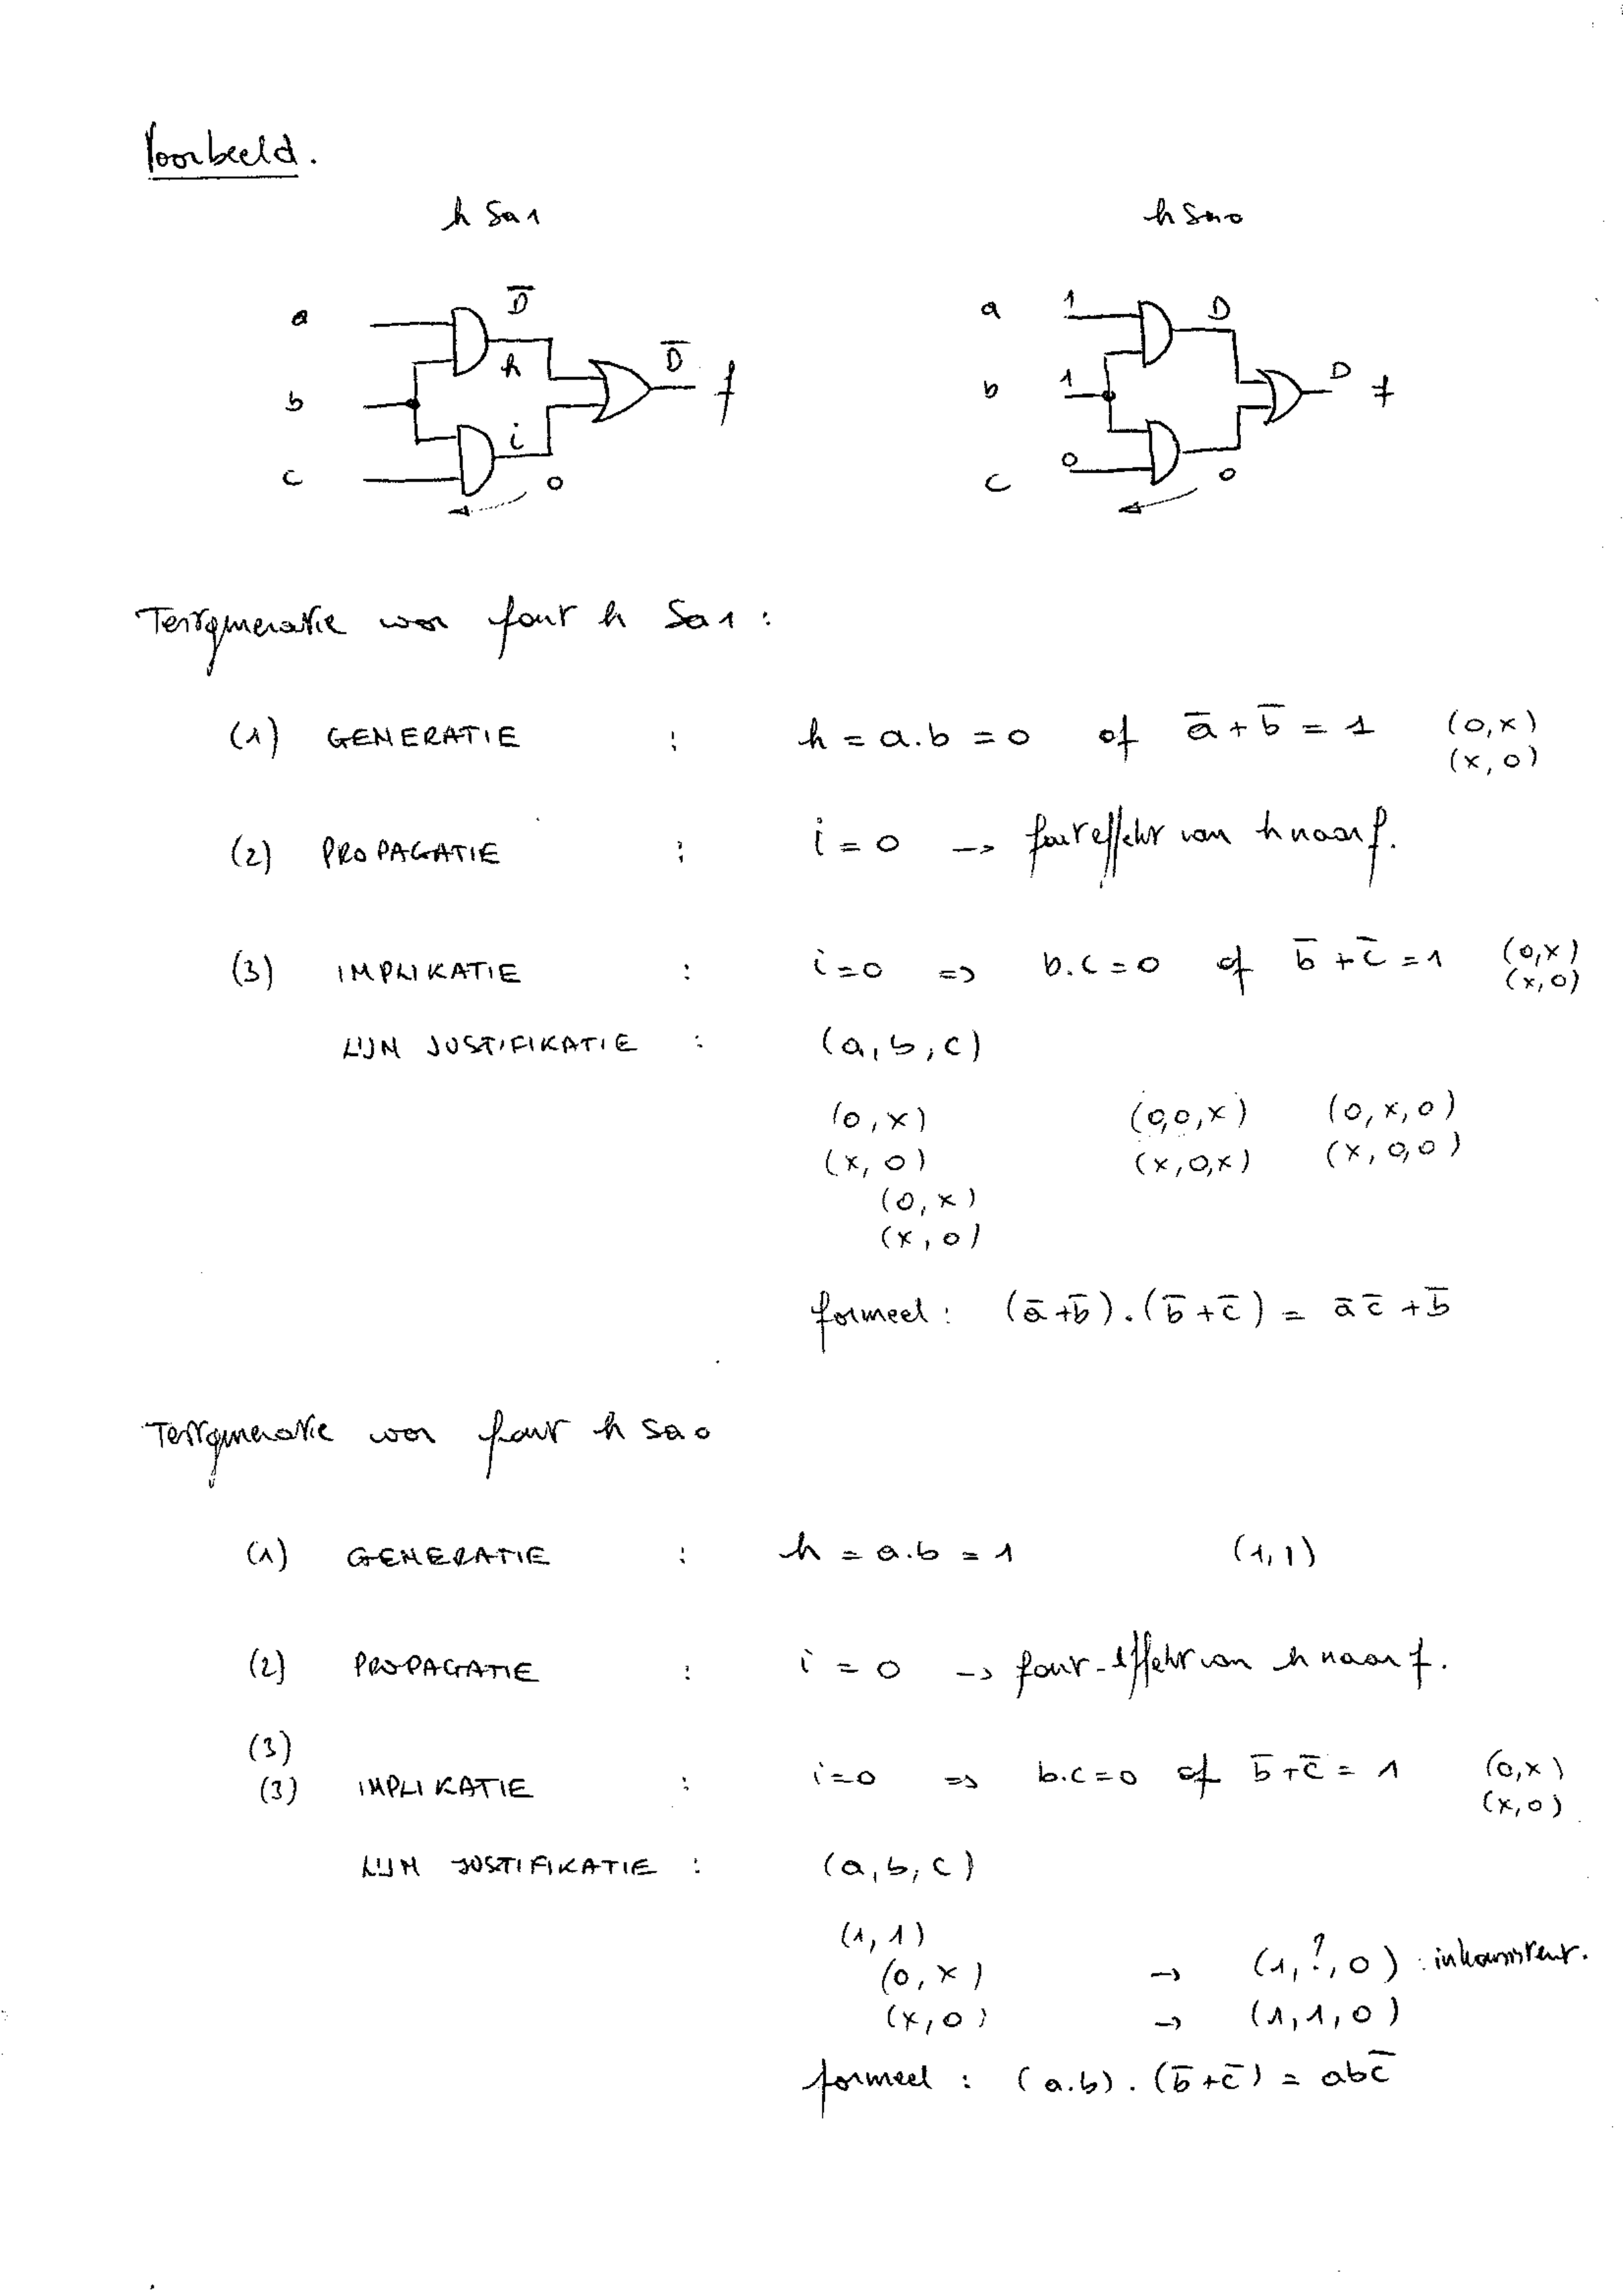 Voorbeeld.
h Sa1
h Sa0
a
D̅
h
D̅
f
b
i
c
0
a
1
D
b
1
D
f
0
c
0
Testgeneratie voor fout h Sa1 :
(1) GENERATIE : h = a.b = 0 of a̅ + b̅ = 1 (0,x)
(x,0)
(2) PROPAGATIE : i = 0 -> fouteffekt van h naar f.
(3) IMPLIKATIE : i=0 => b.c=0 of b̅ + c̅ = 1 (0,x)
(x,0)
LIJN JUSTIFIKATIE : (a,b,c)
(0,x) (0,0,x) (0,x,0)
(x,0) (x,0,x) (x,0,0)
(0,x)
(x,0)
formeel : (a̅+b̅).(b̅+c̅) = a̅c̅ + b̅
Testgeneratie voor fout h sa0
(1) GENERATIE : h = a.b = 1 (1,1)
(2) PROPAGATIE : i = 0 -> fout-effekt van h naar f.
(3)
(3) IMPLIKATIE : i=0 => b.c=0 of b̅+c̅ = 1 (0,x)
(x,0)
LIJN JUSTIFIKATIE : (a,b,c)
(1,1)
(0,x) -> (1,?,0) : inkonsistent.
(x,0) -> (1,1,0)
formeel : (a.b).(b̅+c̅) = abc̅